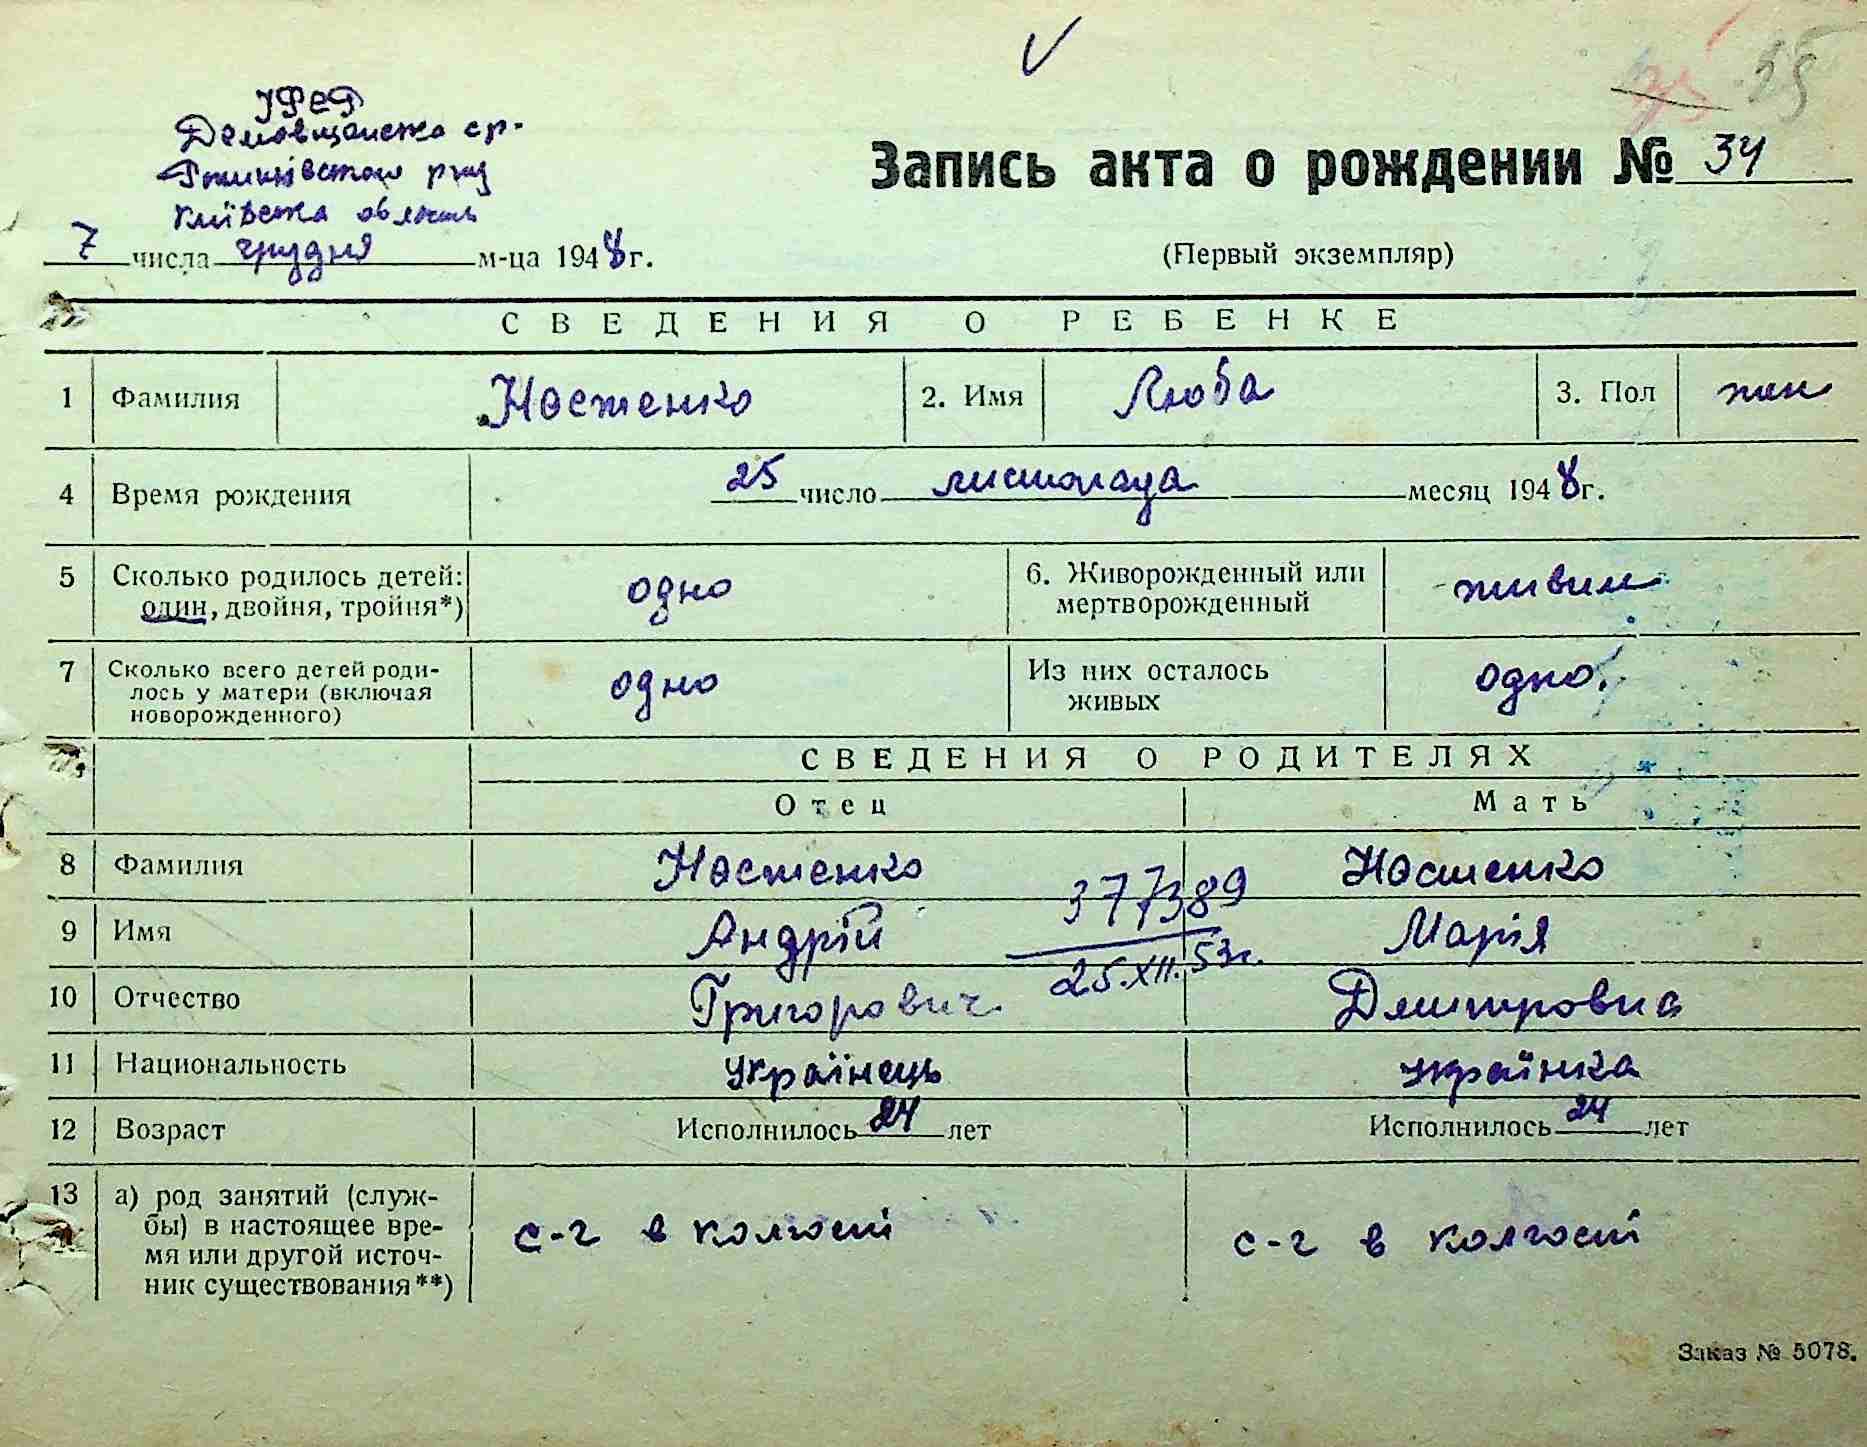 35 35
УРСР
Демовщанська с р.
району
Київська область
Запись акта о рождении № 34
7 числа грудня м-ца 1948 г.
(Первый экземпляр)
СВЕДЕНИЯ О РЕБЕНКЕ
1 Фамилия Настенко 2. Имя Люба 3. Пол жен
4 Время рождения 25 число листопада месяц 1948 г.
5 Сколько родилось детей: одно 6. Живорожденный или живим
один, двойня, тройня*) мертворожденный
7 Сколько всего детей роди- одно Из них осталось одно.
лось у матери (включая живых
новорожденного)
СВЕДЕНИЯ О РОДИТЕЛЯХ
Отец Мать
8 Фамилия Настенко Настенко
377389
9 Имя Андрій Марія
25.XII.53г.
10 Отчество Григорович Дмитровна
11 Национальность українець українка
12 Возраст Исполнилось 24 лет Исполнилось 24 лет
13 а) род занятий (служ- с-г в колгоспі с-г в колгоспі
бы) в настоящее вре-
мя или другой источ-
ник существования**)
Заказ № 5078.